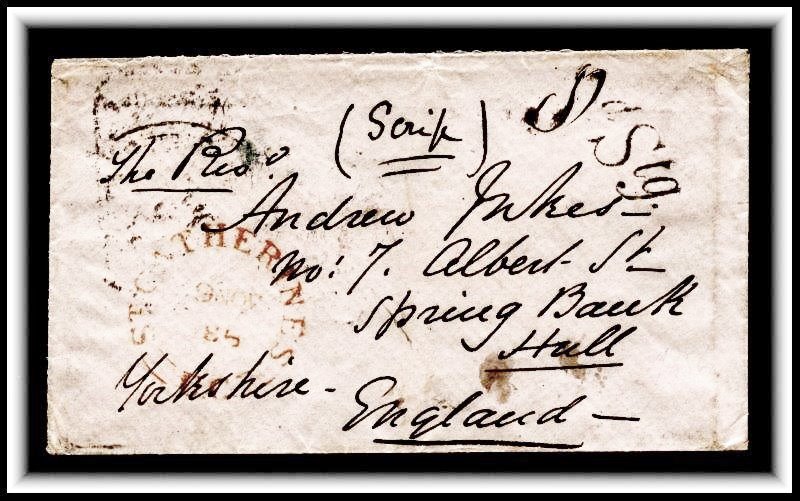 (Scrip)
The Revd.
Andrew Jukes—
No: 7. Albert St
Spring Bank
Hull
Yorkshire—
England—
ST CATHERINES